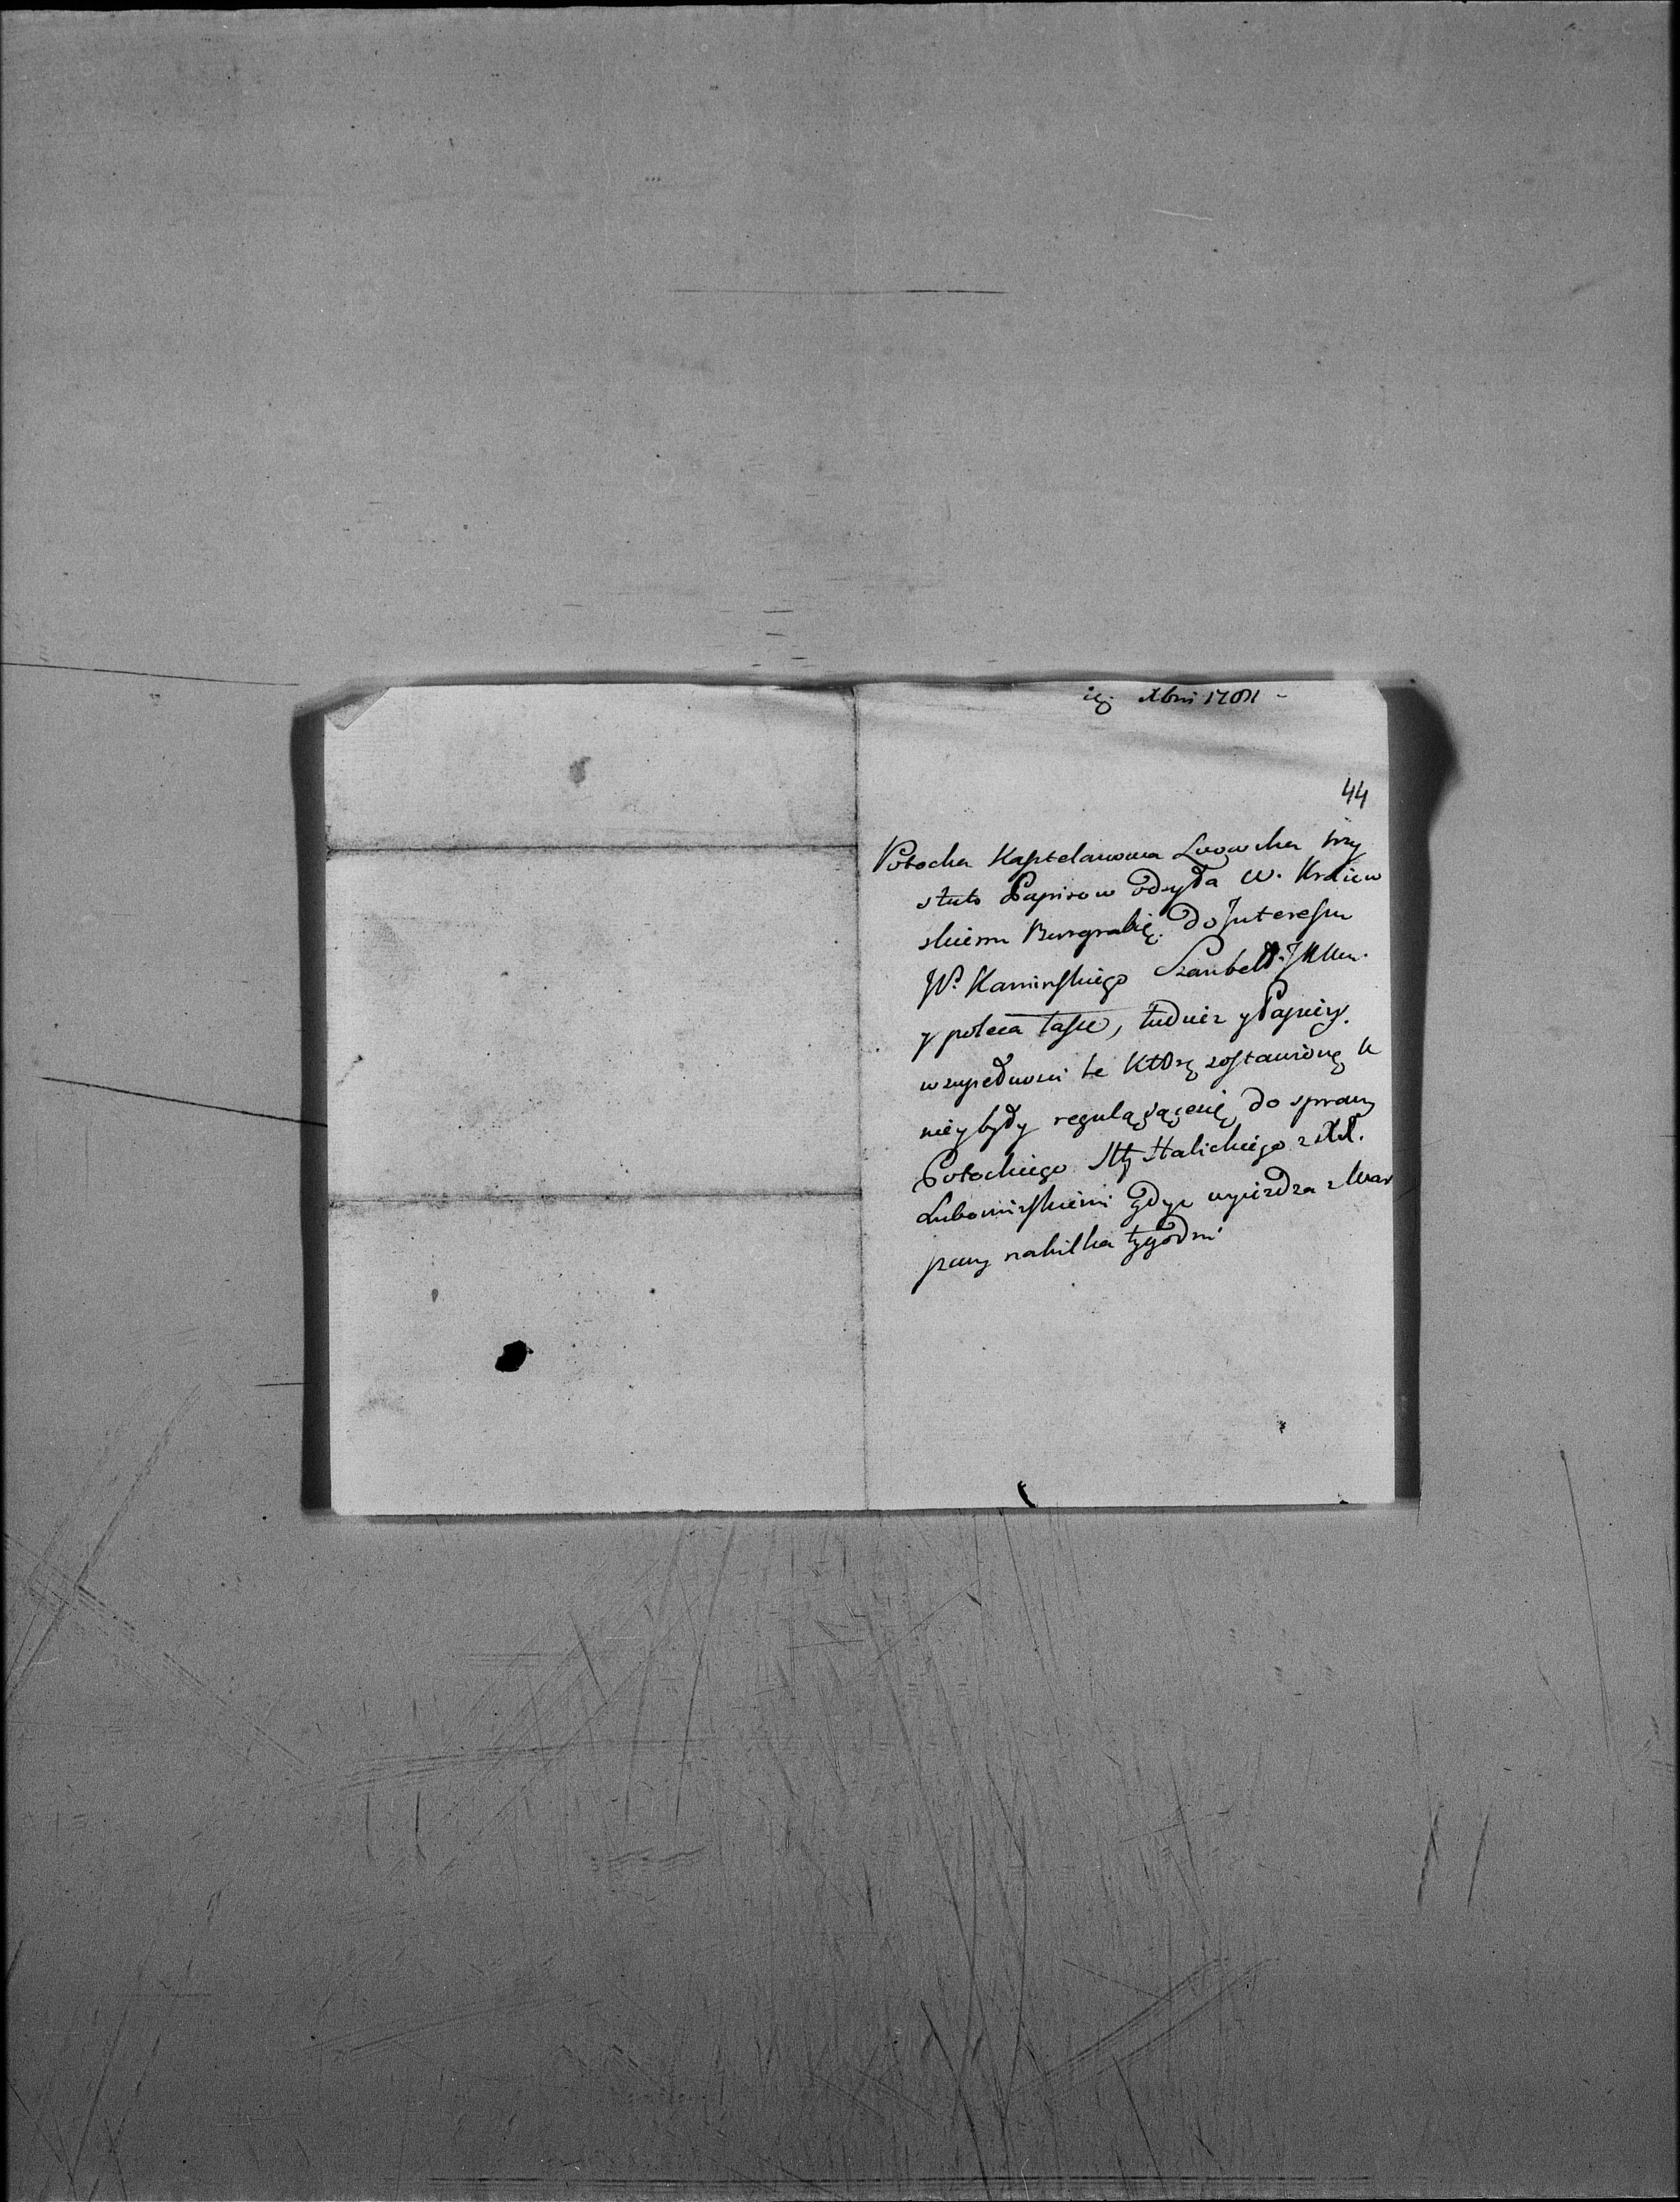 Xbris 1781
44
Potocka Kasztelanowa Lwowska trzy
sztuk Papirow odsyła W. Kraiew
skiemu Burgrabię. do Interessu
JP. Kaminskiego Szambell. JKMci.
y poleca łasce, tudzież y Papiery.
w zupełności te Którę zostawionę u
niey były reguląiącęsię do sprawy
Potockiego Stty Halickiego z XX.
Lubomirskiemi gdyż wyiezdza z War
szawy nakilka tygodni